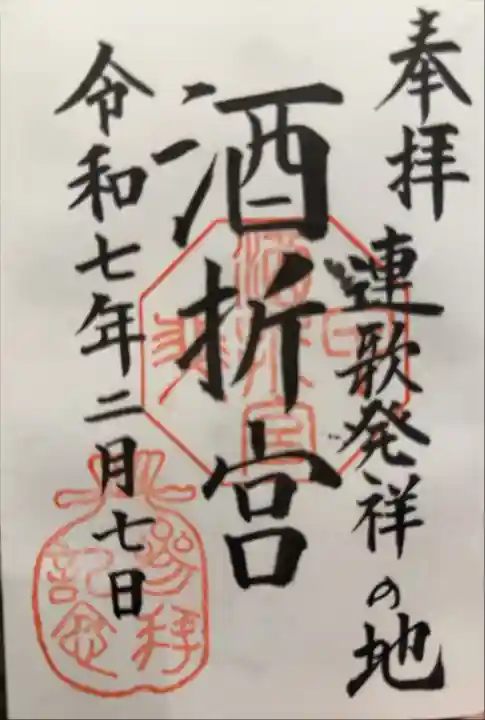 奉拝
連歌発祥の地
酒折宮
令和七年二月七日
参拝
記念